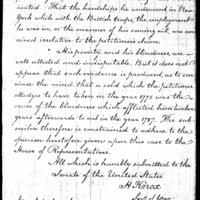 nected. That the hardships he underwent in New
York while with the British troops, the employment
he was in, or the manner of his coming out, are con
nected relative to the petitioners claim.
"His poverty, and his blindness, are
well attested and indisputable. But it does not
appear that such evidence is produced, as to con
vince the mind that a cold which the petitioner
alledges to have taken in the year 1778 was the
cause of the blindness which afflicted him twelve
years afterwards to wit in the year 1787. The sub
scriber therefore is constrained to adhere to the
opinion heretofore given upon this case to the
House of Representatives.
All which is humbly submitted to the
Senate of the United States
H Knox